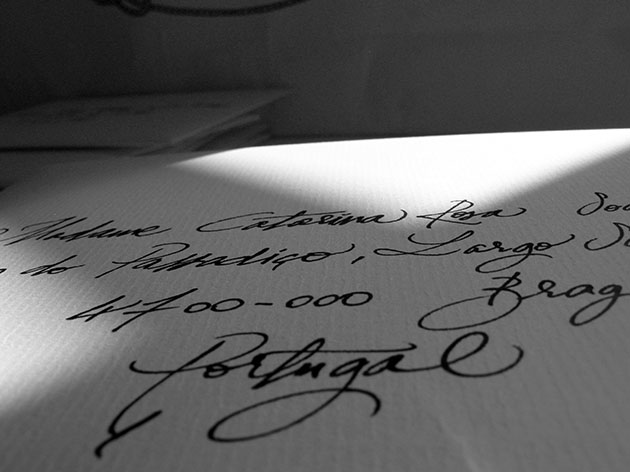 Madame Catarina Rosa
do Passadiço, Largo
4700-000 Brag
Portugal